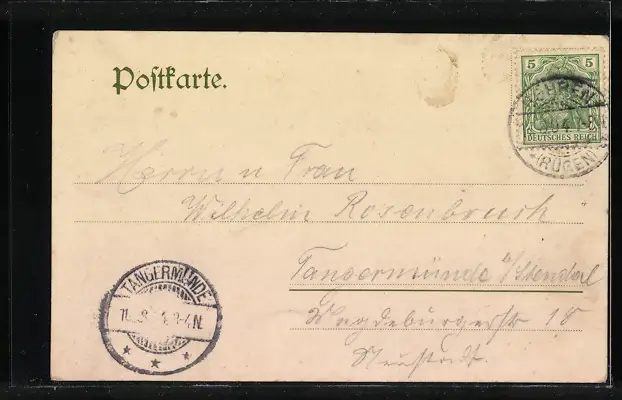 Postkarte.
5 5
DEUTSCHES REICH
(RÜGEN)
Herrn u Frau
Wilhelm Rosenbruch
Tangermünde b/Stendal
Magdeburgerstr 18
Neustadt.
TANGERMÜNDE